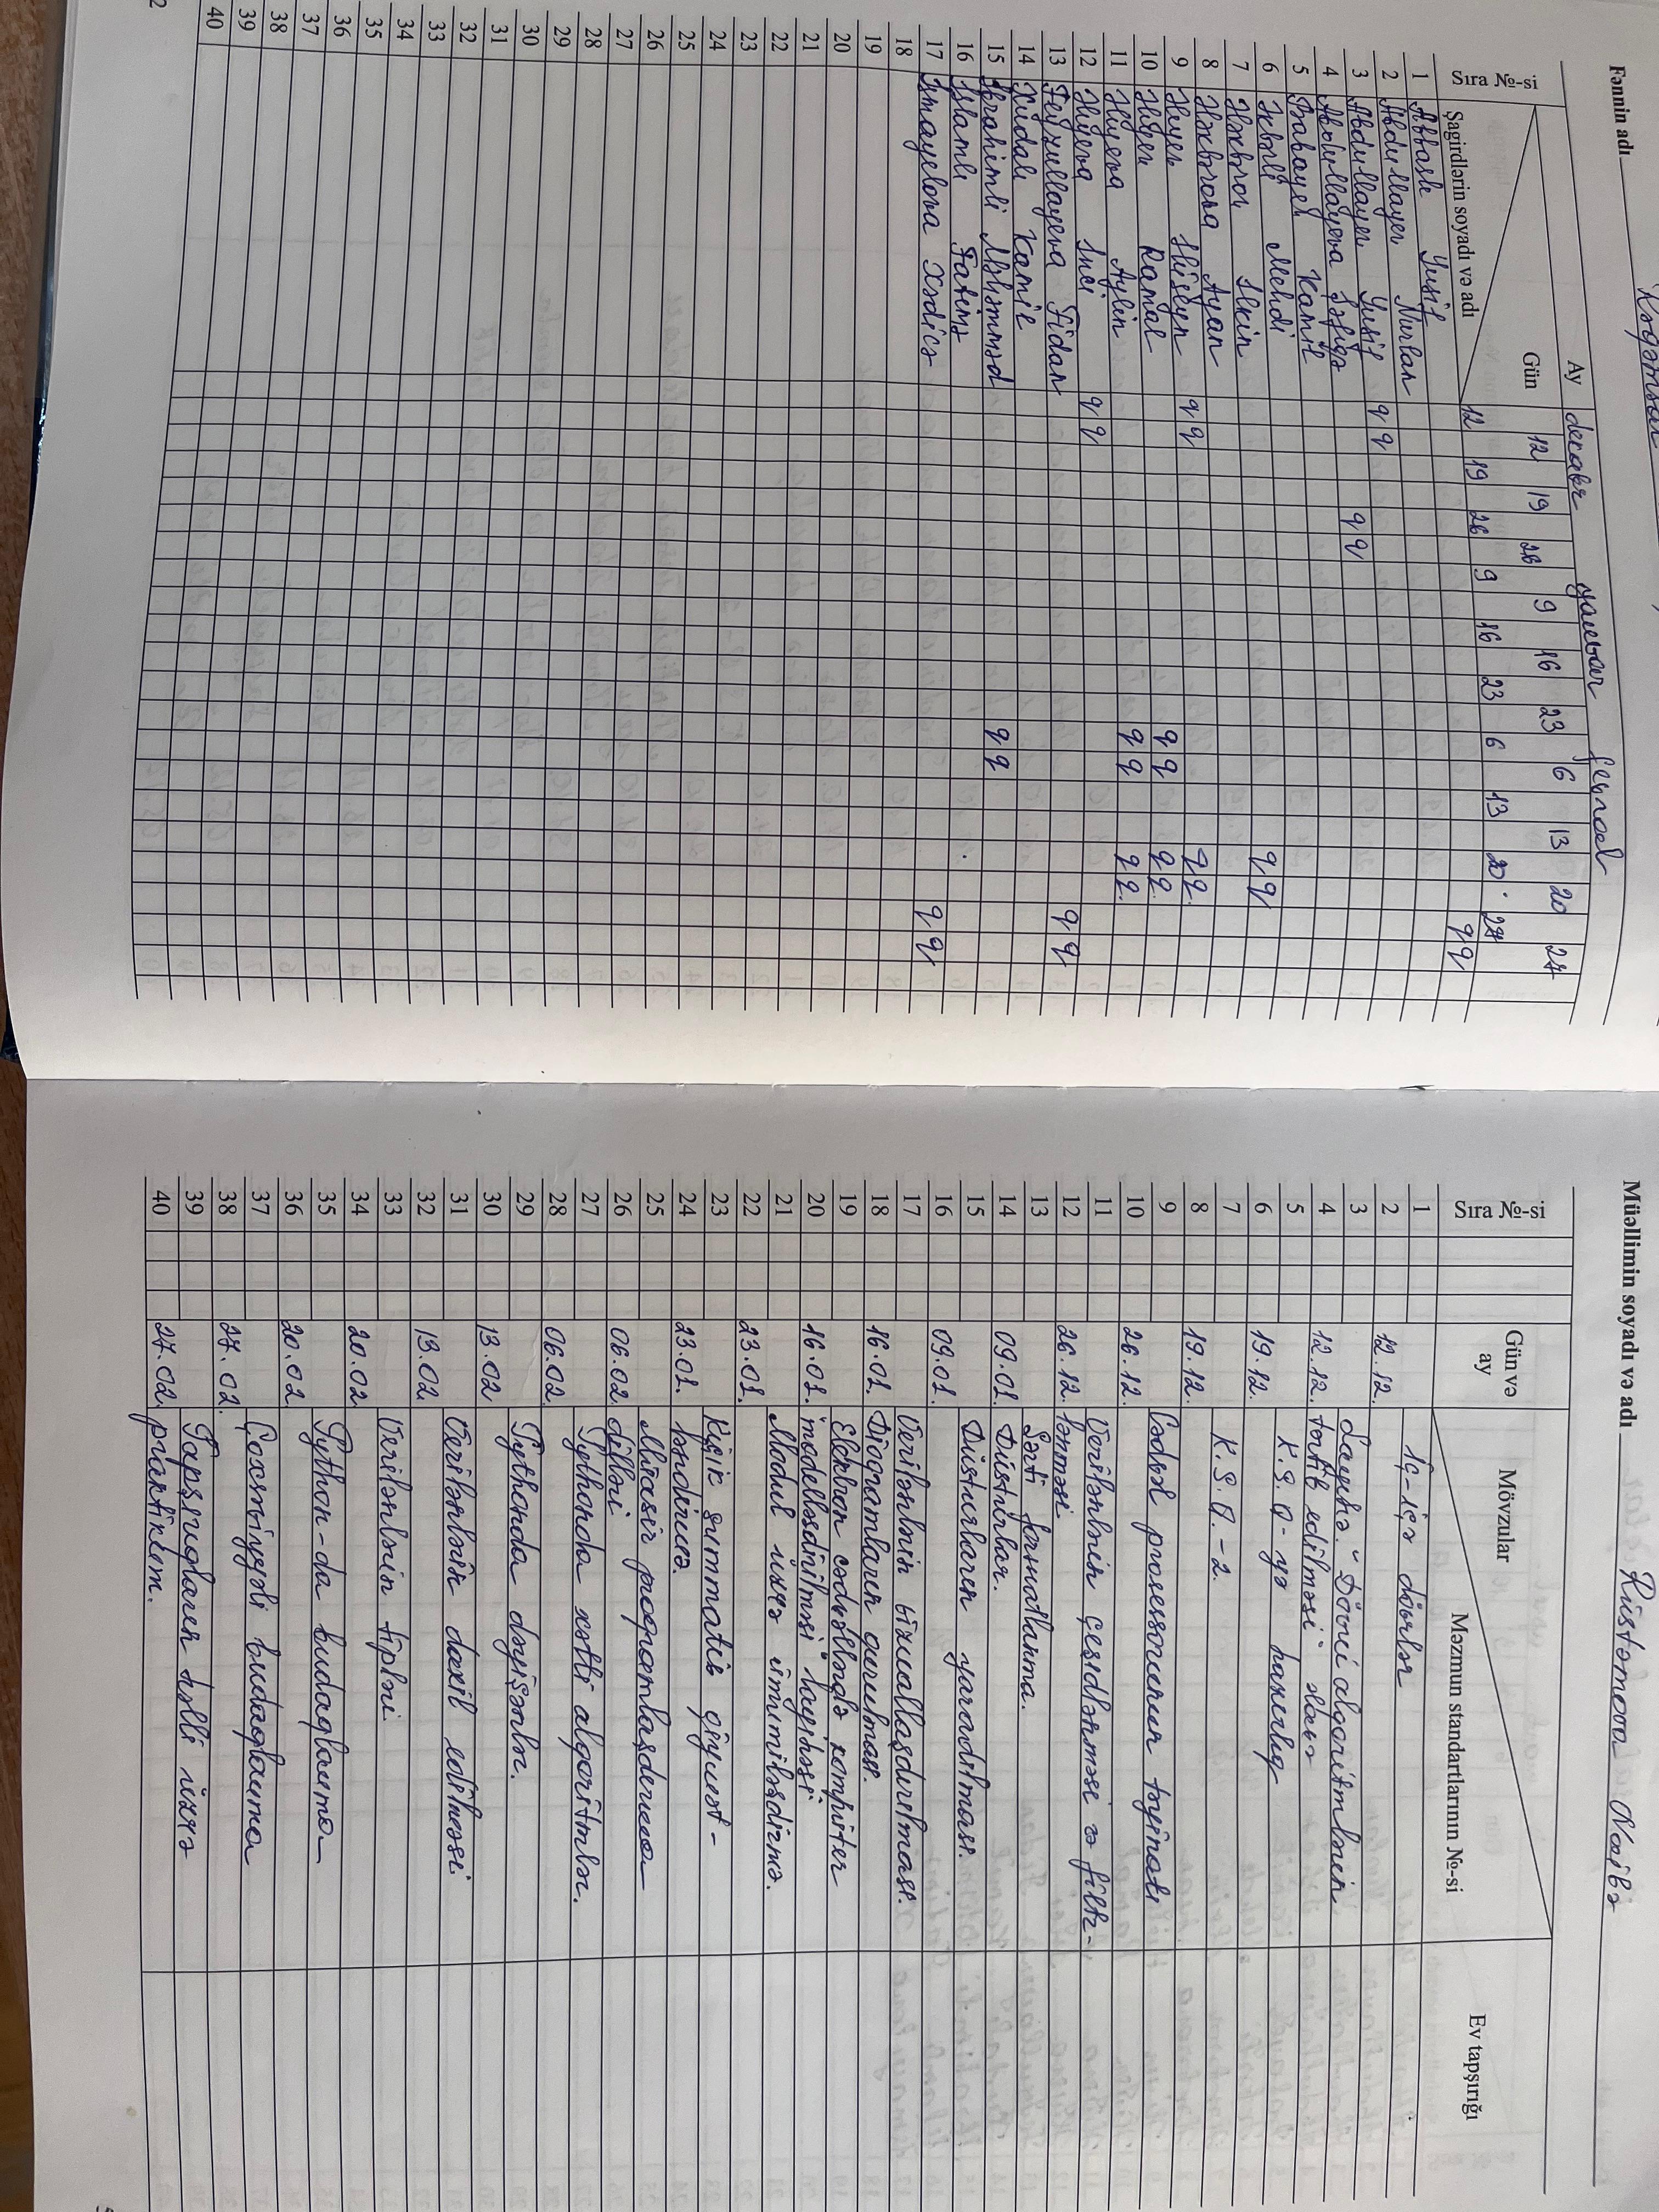 Fənnin adı Rəqəmsal
Ay dekabr yanvar fevral
Gün 12 19 26 9 16 23 6 13 20 27
12 19 26 9 16 23 6 13 20 27
Sıra №-si
Şagirdlərin soyadı və adı q q
1 Abbaslı Yusif
2 Abdullayev Nurlan
3 Abdullayev Yusif q q
4 Abdullayeva Şəfiqə q q
5 Babayev Kamil
6 Əkbərli Mehdi
7 Ələkbərov İlkin q q
8 Ələkbərova Ayan
9 Əliyev Hüseyn q q q q.
10 Əliyev Ramal q q q q.
11 Əliyeva Aylin q q q q.
12 Əliyeva İnci q q
13 Feyzullayeva Fidan q q
14 Xudalı Kamil
15 İbrahimli Məhəmməd q q
16 İslamlı Fatimə
17 İsmayılova Xədicə q q
18
19
20
21
22
23
24
25
26
27
28
29
30
31
32
33
34
35
36
37
38
39
40
2
Müəllimin soyadı və adı Rüstəmova Naibə
Sıra №-si
Gün və ay
Mövzular
Məzmun standartlarının №-si
Ev tapşırığı
1 İç-içə dövrlər
2 12.12.
3 Layihə. "Dövri alqoritmlərin
4 12.12. tərtib edilməsi"
5 K.S.Q-yə hazırlıq
6 19.12.
7 K.S.Q.-2.
8 19.12.
9 Cədvəl prosessorunun təyinatı
10 26.12.
11 Verilənlərin çeşidlənməsi və filtr-
12 26.12. lənməsi
13 Şərti formatlanma.
14 09.01. Düsturlar.
15 Düsturların yaradılması.
16 09.01.
17 Verilənlərin vizuallaşdırılması.
18 16.01. Dioqramların qurulması.
19 Elektron cədvəllərdə kompüter
20 16.01. "modelləşdirilməsi" layihəsi
21 Modul üzrə ümumiləşdirmə.
22 23.01.
23 Kiçik summativ qiymət-
24 23.01. ləndirmə.
25 Müasir proqramlaşdırma
26 06.02 dilləri
27 Pythonda xətti alqoritmlər.
28 06.02
29 Pythonda dəyişənlər.
30 13.02
31 Verilənlərin daxil edilməsi
32 13.02
33 Verilənlərin tipləri
34 20.02
35 Python-da budaqlanma
36 20.02
37 Çoxsəviyyəli budaqlanma
38 27.02.
39 Tapşırıqların həlli üzrə
40 27.02. praktikum.